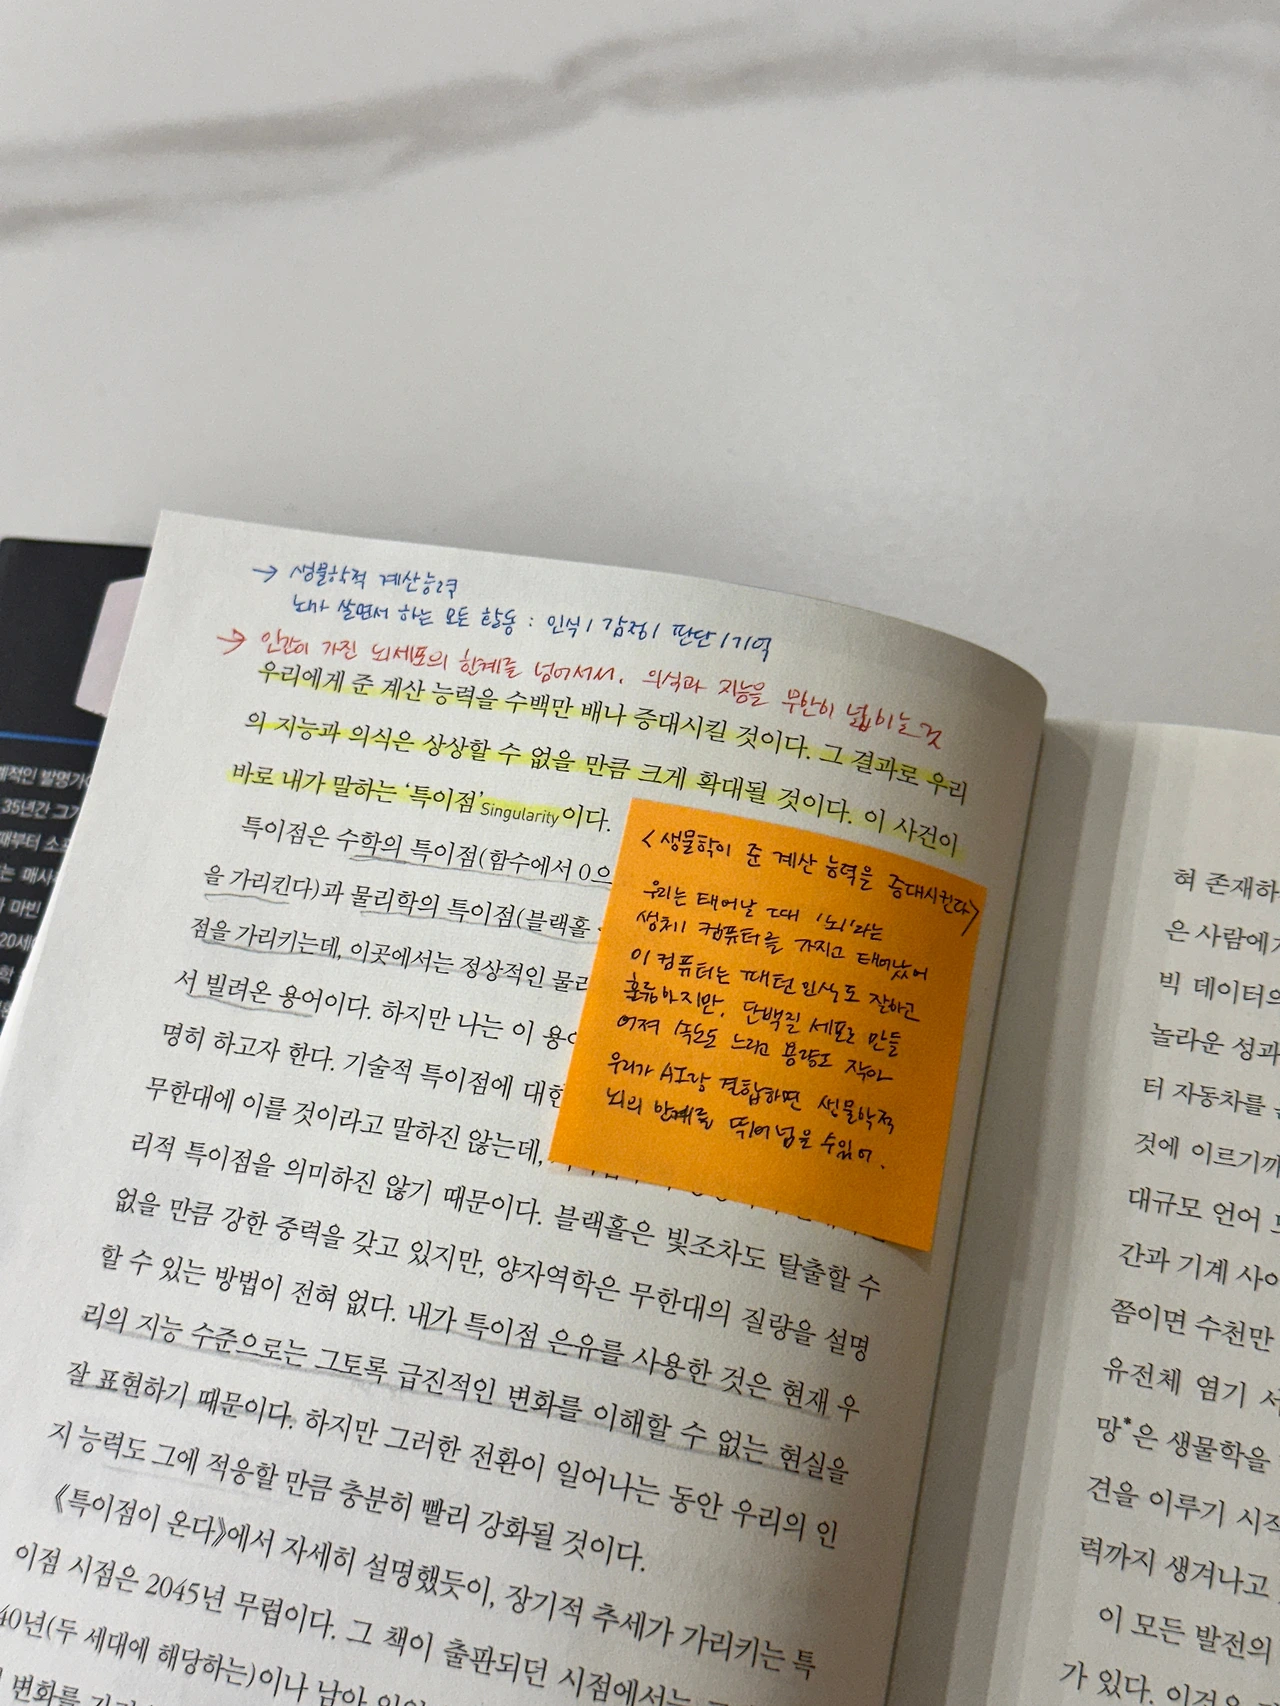 → 생물학적 계산능력
뇌가 살면서 하는 모든 활동 : 인식 / 감정 / 판단 / 기억
→ 인간이 가진 뇌세포의 한계를 넘어서서, 의식과 지능을 무한히 넓히는 것
우리에게 준 계산 능력을 수백만 배나 증대시킬 것이다. 그 결과로 우리
의 지능과 의식은 상상할 수 없을 만큼 크게 확대될 것이다. 이 사건이
바로 내가 말하는 ‘특이점’Singularity이다.
특이점은 수학의 특이점(함수에서 0으
을 가리킨다)과 물리학의 특이점(블랙홀
점을 가리키는데, 이곳에서는 정상적인 물리
서 빌려온 용어이다. 하지만 나는 이 용어
명히 하고자 한다. 기술적 특이점에 대한
무한대에 이를 것이라고 말하진 않는데,
리적 특이점을 의미하진 않기 때문이다. 블랙홀은 빛조차도 탈출할 수
없을 만큼 강한 중력을 갖고 있지만, 양자역학은 무한대의 질량을 설명
할 수 있는 방법이 전혀 없다. 내가 특이점 은유를 사용한 것은 현재 우
리의 지능 수준으로는 그토록 급진적인 변화를 이해할 수 없는 현실을
잘 표현하기 때문이다. 하지만 그러한 전환이 일어나는 동안 우리의 인
지 능력도 그에 적응할 만큼 충분히 빨리 강화될 것이다.
《특이점이 온다》에서 자세히 설명했듯이, 장기적 추세가 가리키는 특
이점 시점은 2045년 무렵이다. 그 책이 출판되던 시점에서는
40년(두 세대에 해당하는)이나 남아
변화를
<생물학이 준 계산 능력을 증대시킨다>
우리는 태어날 때 '뇌'라는
생체 컴퓨터를 가지고 태어났어
이 컴퓨터는 패턴 인식도 잘하고
훌륭하지만, 단백질 세포로 만들
어져 속도도 느리고 용량도 작아
우리가 AI랑 결합하면 생물학적
뇌의 한계를 뛰어넘을 수있어.
혀 존재하
은 사람에게
빅 데이터의
놀라운 성과
터 자동차를
것에 이르기까
대규모 언어 모
간과 기계 사이
쯤이면 수천만
유전체 염기 서
망*은 생물학을
견을 이루기 시작
력까지 생겨나고
이 모든 발전의
가 있다. 이것은
35년간 그
때부터 소
는 매사
마빈
20세
학